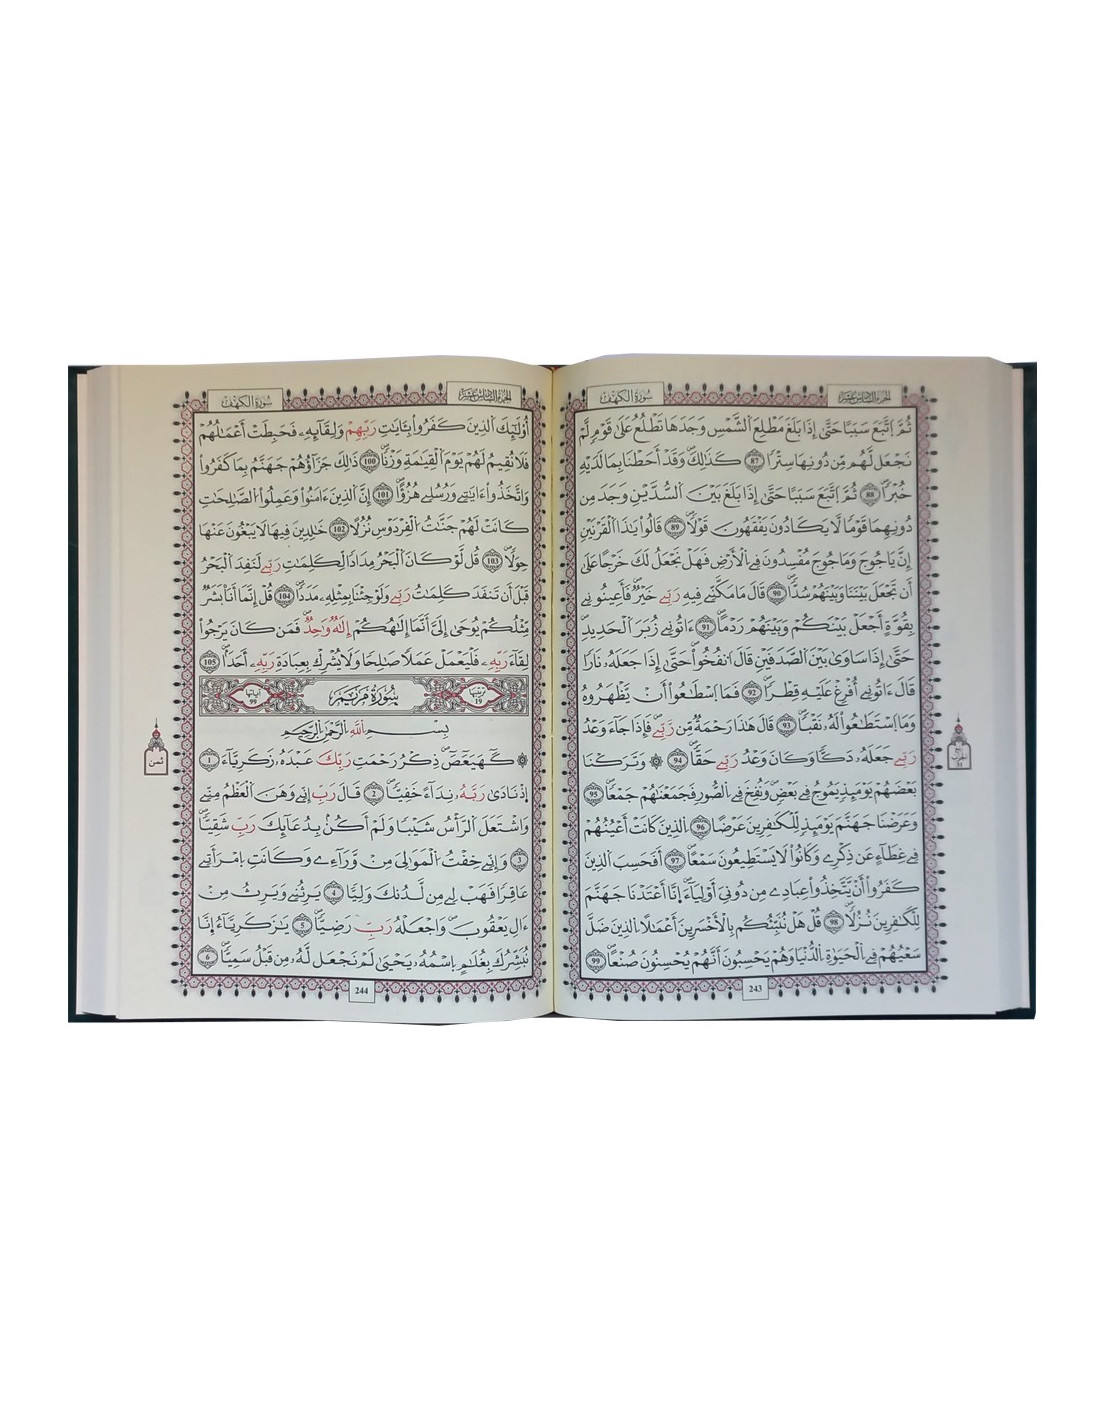 الجزء السادس عشر
سورة الكهف
ثُمَّ اَ۪تَّبَعَ سَبَباً حَتَّىٰٓ إِذَا بَلَغَ مَطْلِعَ اَ۬لشَّمْسِ وَجَدَهَا تَطْلُعُ عَلَىٰ قَوْمٖ لَّمْ
نَجْعَل لَّهُم مِّن دُونِهَا سِتْراًۖ 87 كَذَٰلِكَۖ وَقَدْ أَحَطْنَا بِمَا لَدَيْهِ
خُبْراًۖ 88 ثُمَّ اَ۪تَّبَعَ سَبَباً حَتَّىٰٓ إِذَا بَلَغَ بَيْنَ اَ۬لسُّدَّيْنِ وَجَدَ مِن
دُونِهِمَا قَوْماٗ لَّا يَكَادُونَ يَفْقَهُونَ قَوْلاًۖ 89 قَالُواْ يَٰذَا اَ۬لْقَرْنَيْنِ
إِنَّ يَاجُوجَ وَمَاجُوجَ مُفْسِدُونَ فِے اِ۬لْأَرْضِ فَهَلْ نَجْعَلُ لَكَ خَرْجاً عَلَىٰٓ
أَن تَجْعَلَ بَيْنَنَا وَبَيْنَهُمْ سُدّاًۖ 90 قَالَ مَا مَكَّنِّے فِيهِ رَبِّے خَيْرٞۖ فَأَعِينُونِے
بِقُوَّةٍ اَجْعَلْ بَيْنَكُمْ وَبَيْنَهُمْ رَدْماًۖ 91 ءَاتُونِے زُبَرَ اَ۬لْحَدِيدِۖ
حَتَّىٰٓ إِذَا سَاوَىٰ بَيْنَ اَ۬لصَّدَفَيْنِ قَالَ اَ۟نفُخُواْ حَتَّىٰٓ إِذَا جَعَلَهُۥ نَاراٗ
قَالَ ءَاتُونِےٓ أُفْرِغْ عَلَيْهِ قِطْراًۖ 92 فَمَا اَ۪سْطَٰعُوٓاْ أَنْ يَّظْهَرُوهُ
وَمَا اَ۪سْتَطَٰعُواْ لَهُۥ نَقْباًۖ 93 قَالَ هَٰذَا رَحْمَةٞ مِّن رَّبِّےۖ فَإِذَا جَآءَ وَعْدُ
رَبِّے جَعَلَهُۥ دَكّاٗ وَكَانَ وَعْدُ رَبِّے حَقّاًۖ 94 ۞ وَتَرَكْنَا
بَعْضَهُمْ يَوْمَئِذٖ يَمُوجُ فِے بَعْضٖۖ وَنُفِخَ فِے اِ۬لصُّورِ فَجَمَعْنَٰهُمْ جَمْعاٗۖ 95
وَعَرَضْنَا جَهَنَّمَ يَوْمَئِذٖ لِّلْكَٰفِرِينَ عَرْضاً 96 اِ۬لذِينَ كَانَتَ اَعْيُنُهُمْ
فِے غِطَآءٍ عَن ذِكْرِے وَكَانُواْ لَا يَسْتَطِيعُونَ سَمْعاًۖ 97 أَفَحَسِبَ اَ۬لذِينَ
كَفَرُوٓاْ أَنْ يَّتَّخِذُواْ عِبَادِے مِن دُونِيَ أَوْلِيَآءَۖ اِنَّآ أَعْتَدْنَا جَهَنَّمَ
لِلْكَٰفِرِينَ نُزُلاًۖ 98 قُلْ هَلْ نُنَبِّئُكُم بِالْأَخْسَرِينَ أَعْمَٰلاً اِ۬لذِينَ ضَلَّ
سَعْيُهُمْ فِے اِ۬لْحَيَوٰةِ اِ۬لدُّنْيَا وَهُمْ يَحْسِبُونَ أَنَّهُمْ يُحْسِنُونَ صُنْعاًۖ 99
243
الجزء السادس عشر
سورة الكهف
أُوْلَٰٓئِكَ اَ۬لذِينَ كَفَرُواْ بِـَٔايَٰتِ رَبِّهِمْ وَلِقَآئِهِۦ فَحَبِطَتَ اَعْمَٰلُهُمْ
فَلَا نُقِيمُ لَهُمْ يَوْمَ اَ۬لْقِيَٰمَةِ وَزْناًۖ 100 ذَٰلِكَ جَزَآؤُهُمْ جَهَنَّمُ بِمَا كَفَرُواْ
وَاتَّخَذُوٓاْ ءَايَٰتِے وَرُسُلِے هُزُؤاًۖ 101 إِنَّ اَ۬لذِينَ ءَامَنُواْ وَعَمِلُواْ اُ۬لصَّٰلِحَٰتِ
كَانَتْ لَهُمْ جَنَّٰتُ اُ۬لْفِرْدَوْسِ نُزُلاً 102 خَٰلِدِينَ فِيهَا لَا يَبْغُونَ عَنْهَا
حِوَلاًۖ 103 قُل لَّوْ كَانَ اَ۬لْبَحْرُ مِدَاداٗ لِّكَلِمَٰتِ رَبِّے لَنَفِدَ اَ۬لْبَحْرُ
قَبْلَ أَن تَنفَدَ كَلِمَٰتُ رَبِّے وَلَوْ جِئْنَا بِمِثْلِهِۦ مَدَداًۖ 104 قُلِ اِنَّمَآ أَنَا بَشَرٞ
مِّثْلُكُمْ يُوحَىٰٓ إِلَيَّ أَنَّمَآ إِلَٰهُكُمُۥٓ إِلَٰهٞ وَٰحِدٞۖ فَمَن كَانَ يَرْجُواْ
لِقَآءَ رَبِّهِۦ فَلْيَعْمَلْ عَمَلاٗ صَٰلِحاٗ وَلَا يُشْرِكْ بِعِبَادَةِ رَبِّهِۦٓ أَحَداًۖ 105
ترتيبها 19
سورة مريم
آياتها 99
بِسْمِ اِ۬للَّهِ اِ۬لرَّحْمَٰنِ اِ۬لرَّحِيمِ
۞ كَٓهَيَعَٓصَٓۖ ذِكْرُ رَحْمَتِ رَبِّكَ عَبْدَهُۥ زَكَرِيَّآءَ 1
اِ۪ذْ نَادَىٰ رَبَّهُۥ نِدَآءً خَفِيّاٗۖ 2 قَالَ رَبِّ إِنِّے وَهَنَ اَ۬لْعَظْمُ مِنِّے
وَاشْتَعَلَ اَ۬لرَّأْسُ شَيْباٗ وَلَمَ اَكُنۢ بِدُعَآئِكَ رَبِّ شَقِيّاٗۖ
3 وَإِنِّے خِفْتُ اُ۬لْمَوَٰلِيَ مِنْ وَّرَآءِے وَكَانَتِ اِ۪مْرَأَتِے
عَاقِراٗ فَهَبْ لِے مِن لَّدُنكَ وَلِيّاٗ 4 يَرِثُنِے وَيَرِثُ مِنَ
اٰلِ يَعْقُوبَۖ وَاجْعَلْهُ رَبِّ رَضِيّاٗۖ 5 يَٰزَكَرِيَّآءُ اِ۪نَّا
نُبَشِّرُكَ بِغُلَٰمٍ اِ۪سْمُهُۥ يَحْيَىٰ لَمْ نَجْعَل لَّهُۥ مِن قَبْلُ سَمِيّاٗۖ 6
ثمن
244